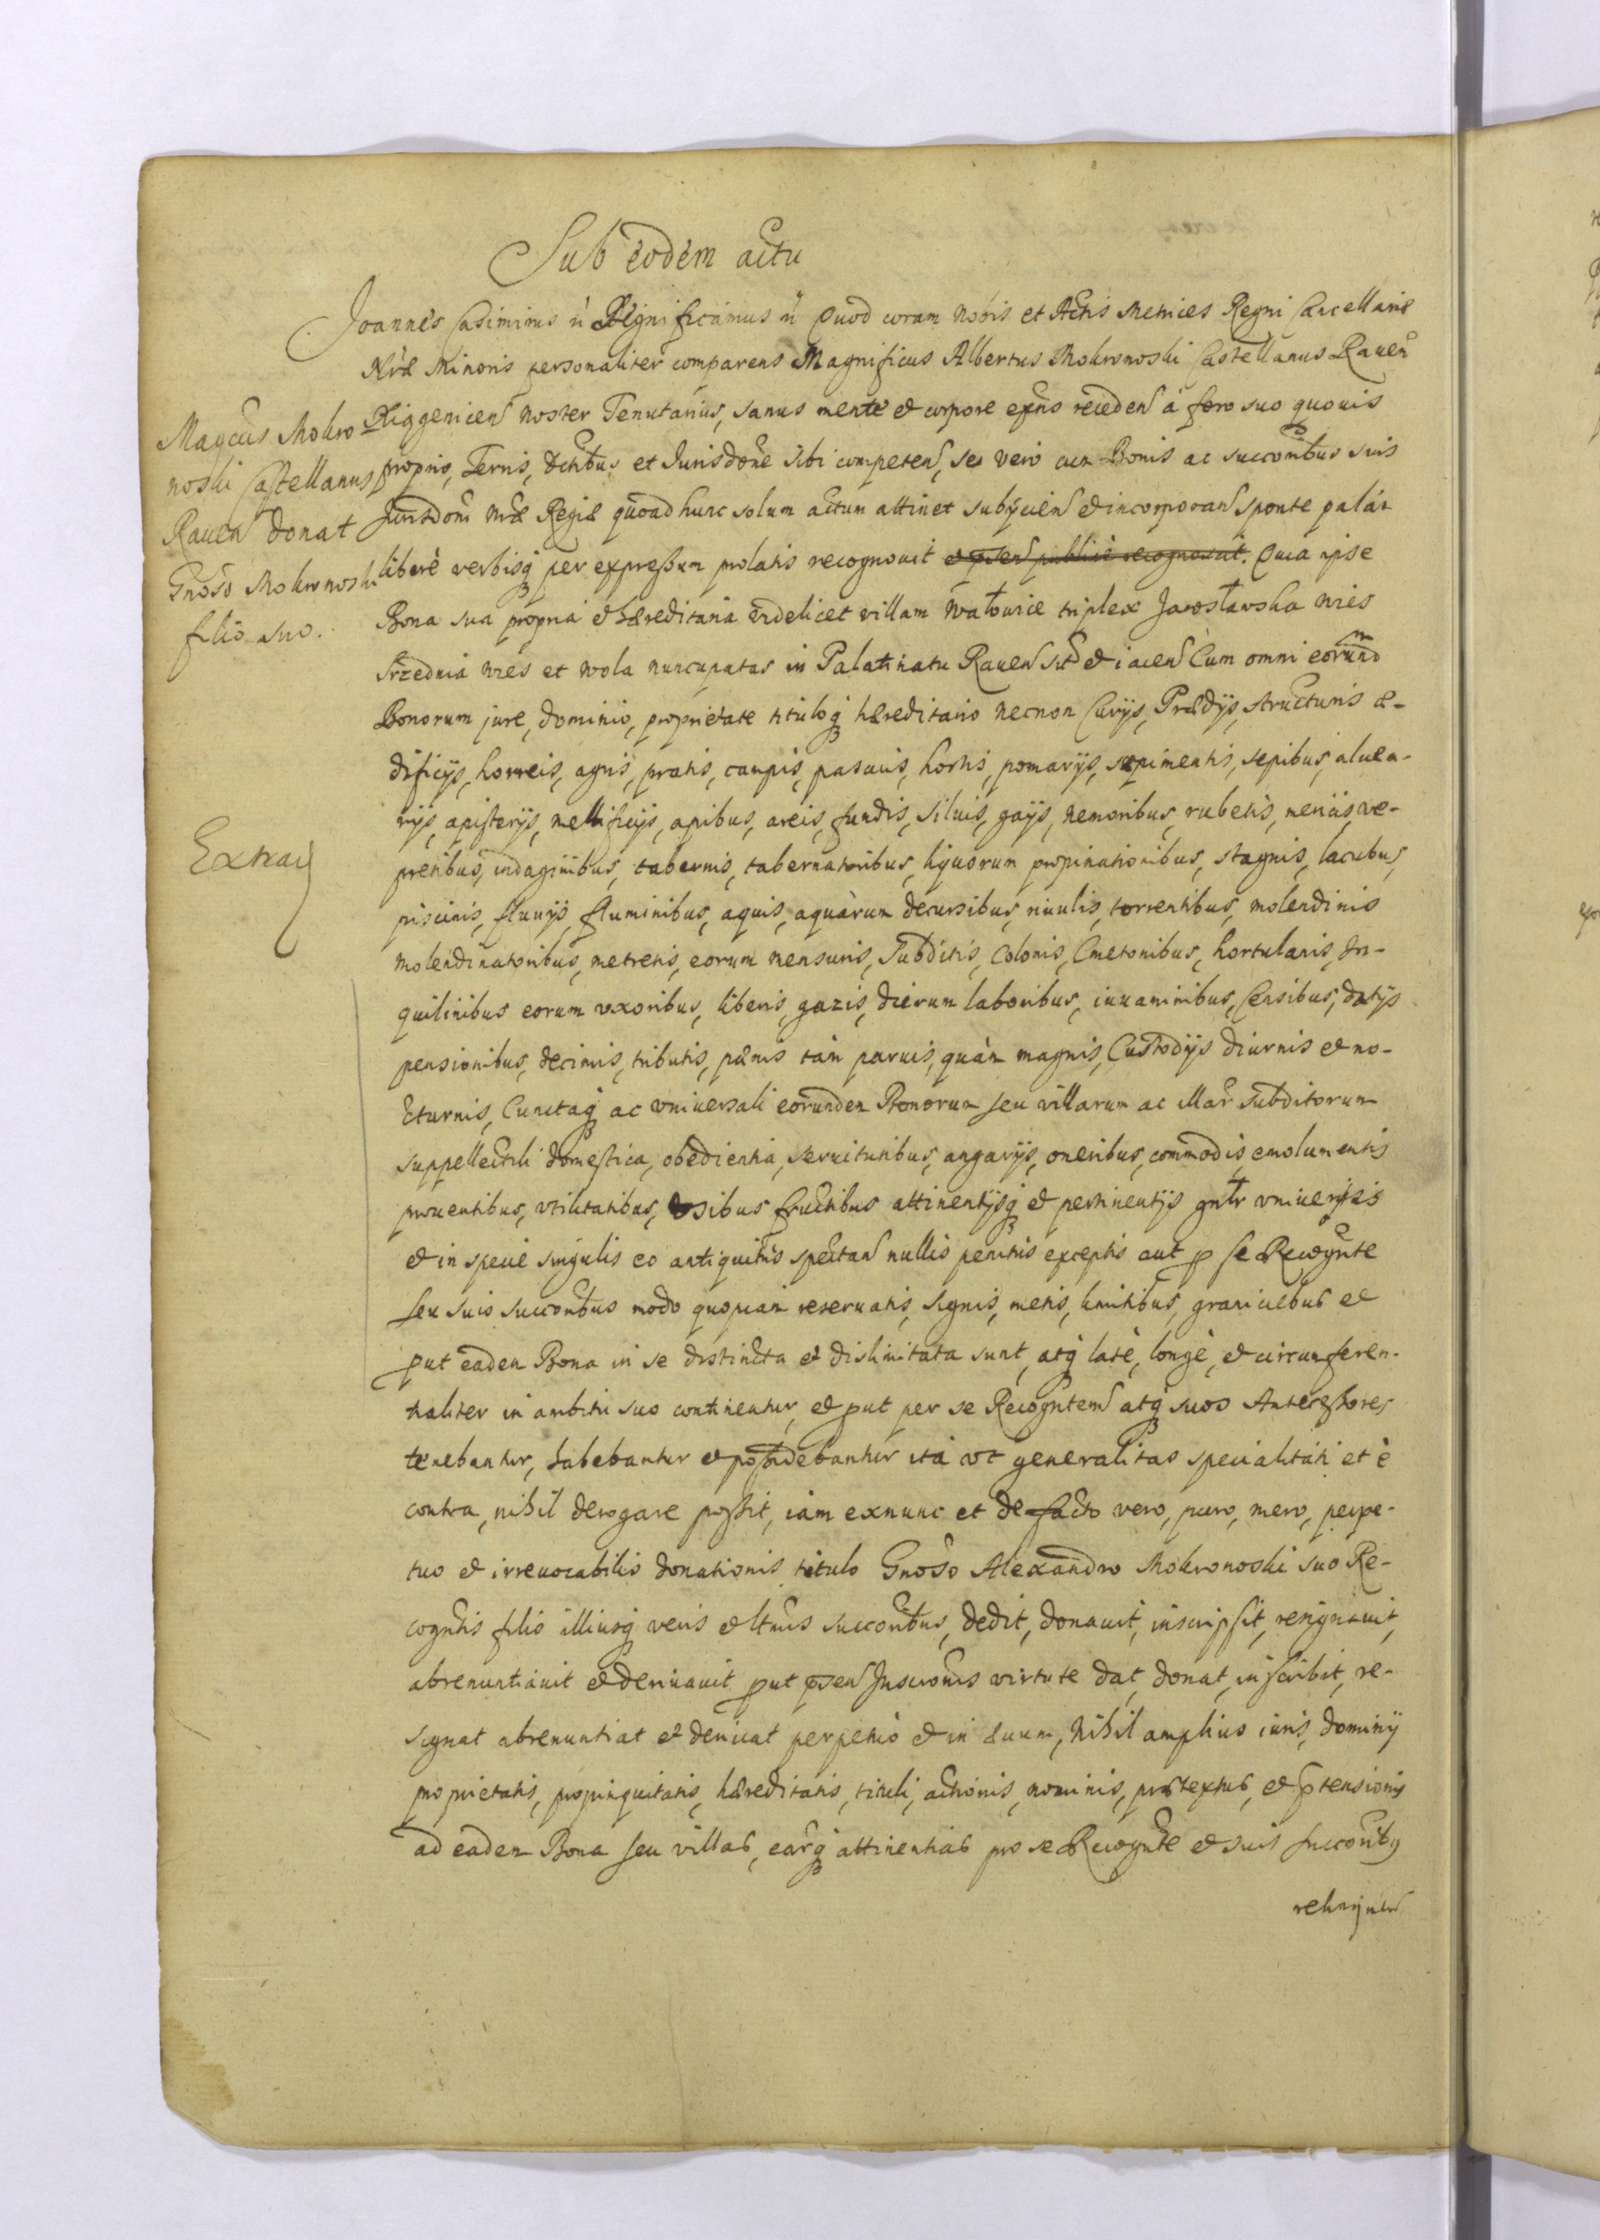 Sub eodem actu
Joannes Casimirus etc Significamus etc Quod coram Nobis et Actis Metrices Regni Cancellariæ
Nræ Minoris personaliter comparens Magnificus Albertus Mokronoski Castellanus Rauen
noster Tenutarius, sanus mente et corpore exñs receden à foro suo quouis
proprio, Terris, et Jurisdone sibi competen, se vero cum Bonis ac succoribus suis
Jurisdoni nræ Regiæ quoad hunc solum actum attinet subÿcien et incorporan sponte palàm
liberè verbisq per expressum prolatis recognouit et psen publicè recognoscit. Quia ipse
Bona sua propria et hæreditaria videlicet villam Wałowice triplex Jarosławska wies
Srzednia wies et Wola nuncupatas in Palatinatu Rauen sit et iacen Cum omni eorund
Bonorum jure, dominio, proprietate tituloq hæreditario necnon Curÿs, Prædÿs, structuris æ-
dificÿs, horreis, agris, pratis, campis, pascuis, hortis, pomarÿs, sepimentis, sepibus, aluea-
rÿs, apisterÿs, mellificÿs, apibus, areis, fundis, siluis, gaÿs, nemoribus, rubetis, mericis, ve-
pretibus, indaginibus, tabernis, tabernatoribus, liquorum propinationibus, stagnis, lacubus,
piscinis, fluuÿs fluminibus, aquis, aquàrum decursibus, riuulis, torrentibus, molendinis
molendinatoribus, metretis, eorum mensuris, Subditis, Colonis, Cmetonibus, hortulanis, In-
quilinibus eorum vxoribus, liberis, gazis, dierum laboribus, iuuaminibus, Censibus, datÿs
pensionibus, decimis, tributis, pænis tàm paruis, quàm magnis, Custodÿs diurnis et no-
cturnis, Cunctaq ac vniuersali eorundem Bonorum seu villarum ac illar subditorum
suppellectili domestica, obedientia, seruitutibus, angarÿs, oneribus, commodis, emolumentis
prouentibus, vtilitatibus, vsibus fructibus attinentÿsq et pertinentÿs gnłr vniuersis
et in specie singulis eo antiquitus spectan nullis penitus exceptis aut p se Recognte
seu suis succoribus modo quopiam reseruatis, signis, metis, limitibus, graniciebus et
put eadem Bona in se distincta et dislimitata sunt, atq latè, longè, et circumferen-
tialiter in ambitu suo continentur, et put per se Recognten atq suos Antecessores
tenebantur, habebantur et possidebantur ità vt generalitas specialitati et è
contra, nihil derogare possit, iam exnunc et de facto vero, puro, mero, perpe-
tuo et irreuocabilis donationis titulo Gnoso Alexandro Mokronoski suo Re-
cogntis filio illiusq veris et ltmis succoribus, dedit, donauit, inscripsit, resignauit,
abrenuntiauit et deriuauit put psen Inscronis virtute dat, donat, inscribit, re-
signat abrenuntiat et deriuat perpetuò et in æuum, Nihil amplius iuris, dominÿ
proprietatis, propinquitatis, hæreditatis, tituli, actionis, nominis, prætextus, et ptensionis
ad eadem Bona seu villas, earq attinentias pro se Recognte et suis succoribus
Magcus Mokro
noski Castellanus
Rauen donat
Gnoso Mokronoski
filio suo.